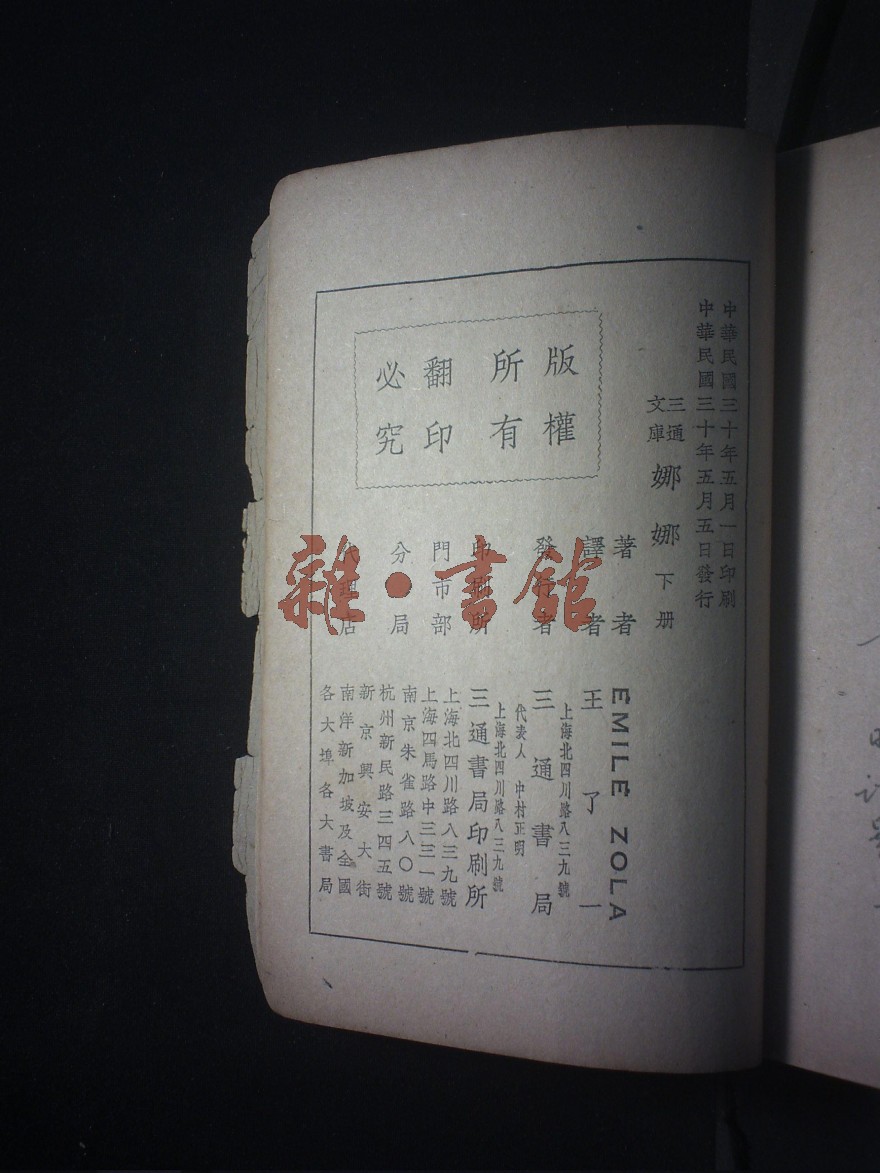 中華民國三十年五月一日印刷
中華民國三十年五月五日發行
三通文庫 娜娜 下册
著者 ÉMILE ZOLA
譯者 王了一
發行者 三通書局
上海北四川路八三九號
代表人 中村正明
印刷所 三通書局印刷所
上海北四川路八三九號
門市部 上海北四川路八三九號
上海四馬路中三三一號
分局 南京朱雀路八〇號
杭州新民路三四五號
新京興安大街
代理店 南洋新加坡及全國
各大埠各大書局
版權
所有
翻印
必究
雜·書館